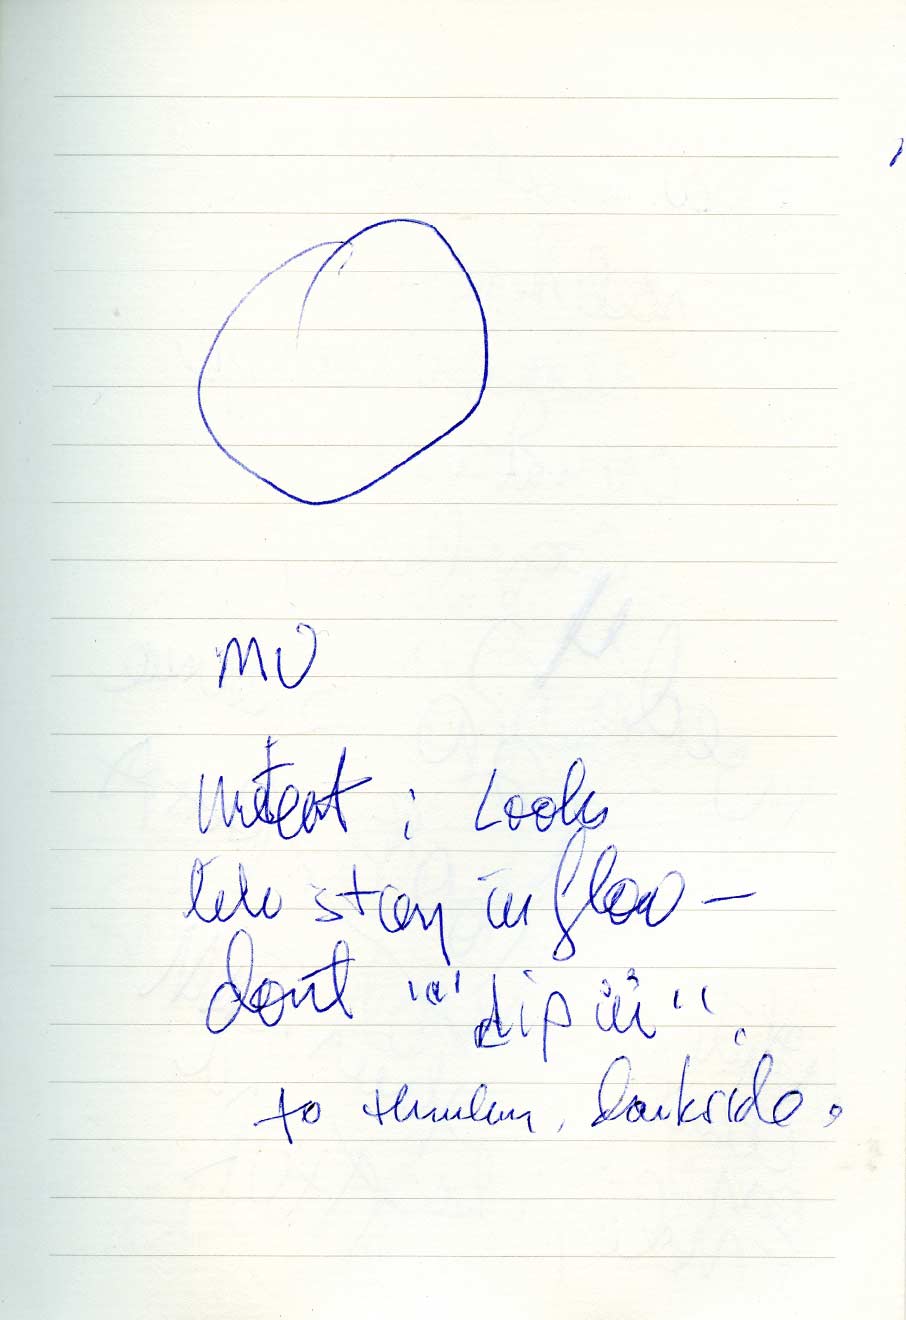 MU
intent : Looks
like stay in flow —
dont "" dip in ".
to thinking, darkside.